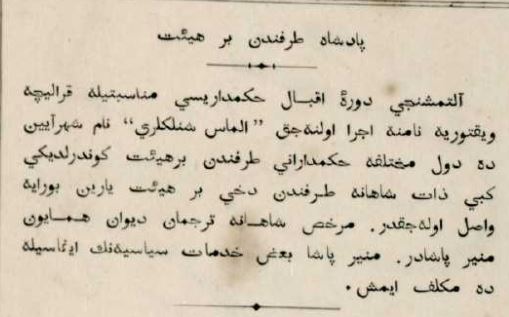 پادشاه طرفندن بر هیئت
آلتمشنجی دورهٔ اقبال حكمداریسی مناسبتیله قرالیچه
ویقتوریه نامنه اجرا اولنه‌جق ”الماس شنلكلری“ نام شهرآیین
ده دول مختلفه حكمدارانی طرفندن برهیئت كوندرلدیكی
كبی ذات شاهانه طرفندن دخی بر هیئت یارین بورایه
واصل اوله‌جقدر. مرخص شاهانه ترجمان دیوان همایون
منیر پاشادر. منیر پاشا بعض خدمات سیاسیه‌نك ایفاسیله
ده مكلف ایمش.